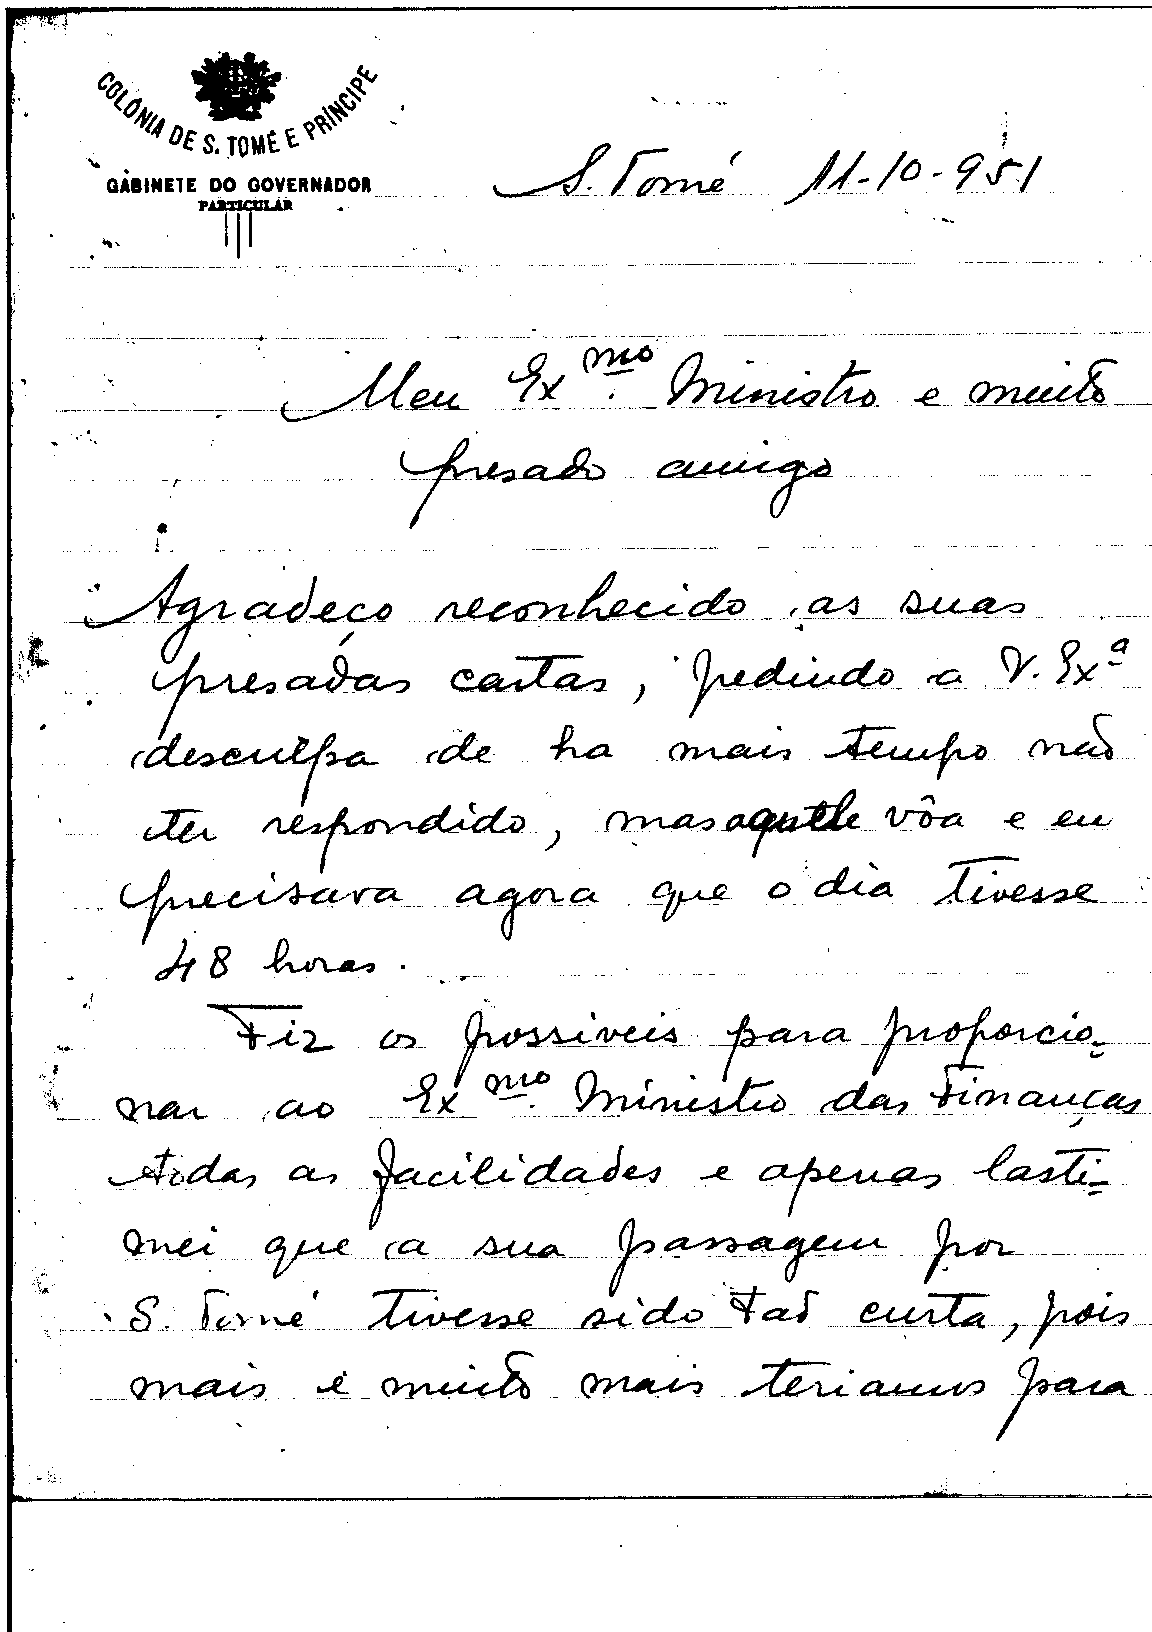 COLÓNIA DE S. TOMÉ E PRÍNCIPE
GABINETE DO GOVERNADOR
PARTICULAR
S. Tomé 11-10-951
Meu Exmo. Ministro e muito
presado amigo
Agradeço reconhecido as suas
presadas cartas, pedindo a V. Exª
desculpa de ha mais tempo não
ter respondido, mas aquele vôa e eu
precisava agora que o dia tivesse
48 horas.
Fiz os possiveis para proporcio-
nar ao Exmo. Ministro das Finanças
todas as facilidades e apenas lasti-
mei que a sua passagem por
S. Tomé tivesse sido tão curta, pois
mais e muito mais teriamos para